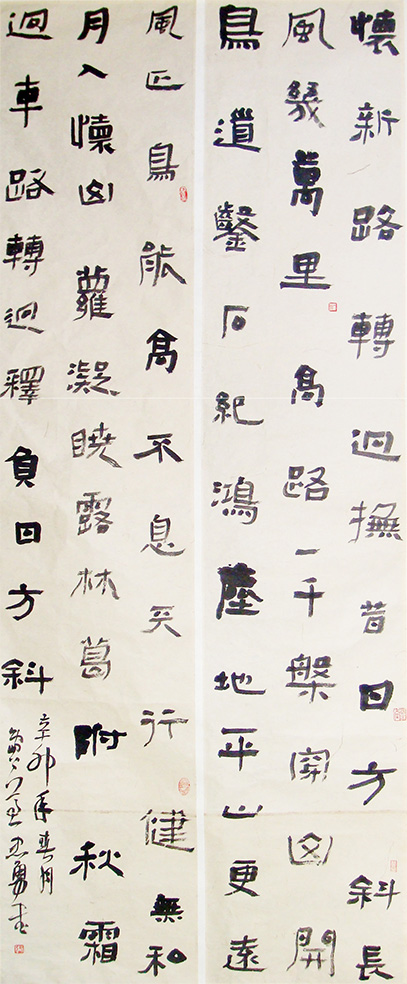 懷新路轉迥撫昔日方斜長
風幾萬里高路一千槃窮幽開
鳥道鑿石紀鴻塵地平山更遠
風正鳥能高不息天行健無和
月入懷幽蘿凝曉露林葛附秋霜
迴車路轉迥釋負日方斜
辛卯年春月
忠勇書